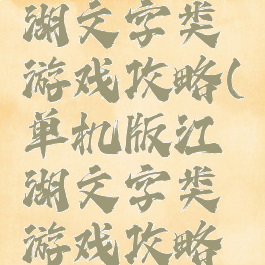 湖文字类
游戏攻略(
单机版江
湖文字类
游戏攻略